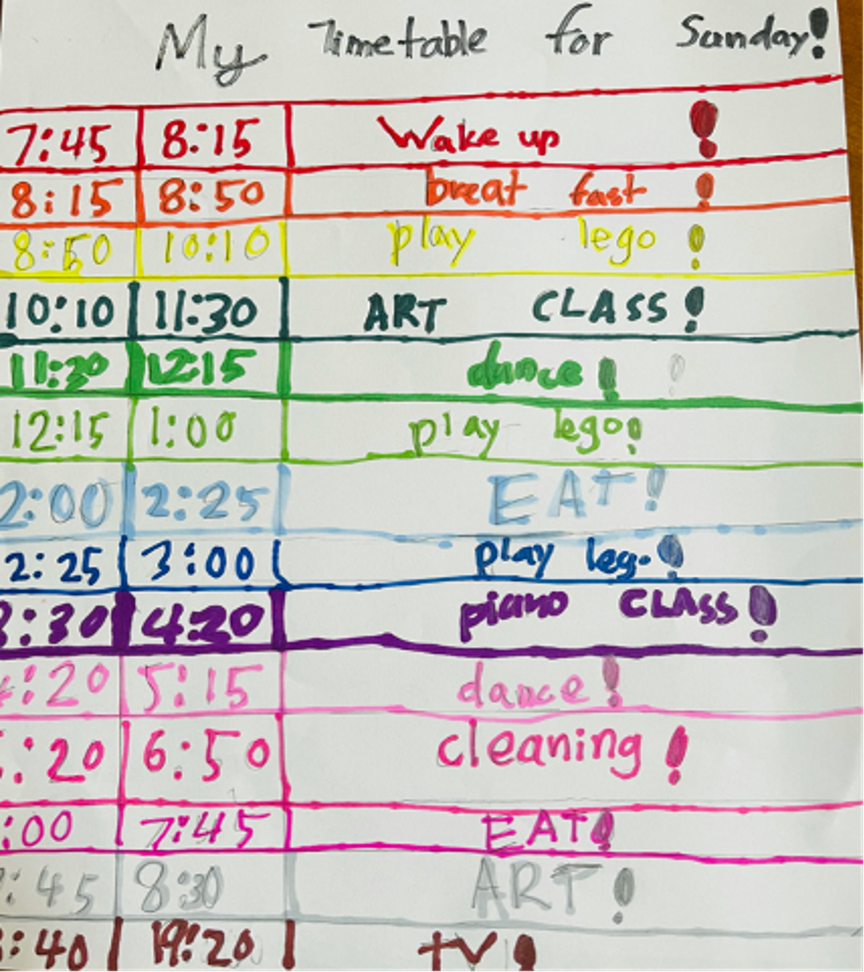 My Timetable for Sunday!
7:45 8:15 Wake up !
8:15 8:50 breat fast !
8:50 10:10 play lego !
10:10 11:30 ART CLASS!
11:30 12:15 dance!
12:15 1:00 play lego!
2:00 2:25 EAT!
2:25 3:00 play leg. !
3:30 4:20 piano CLASS!
4:20 5:15 dance!
:20 6:50 cleaning !
:00 7:45 EAT!
:45 8:30 ART!
:40 19:20 TV!